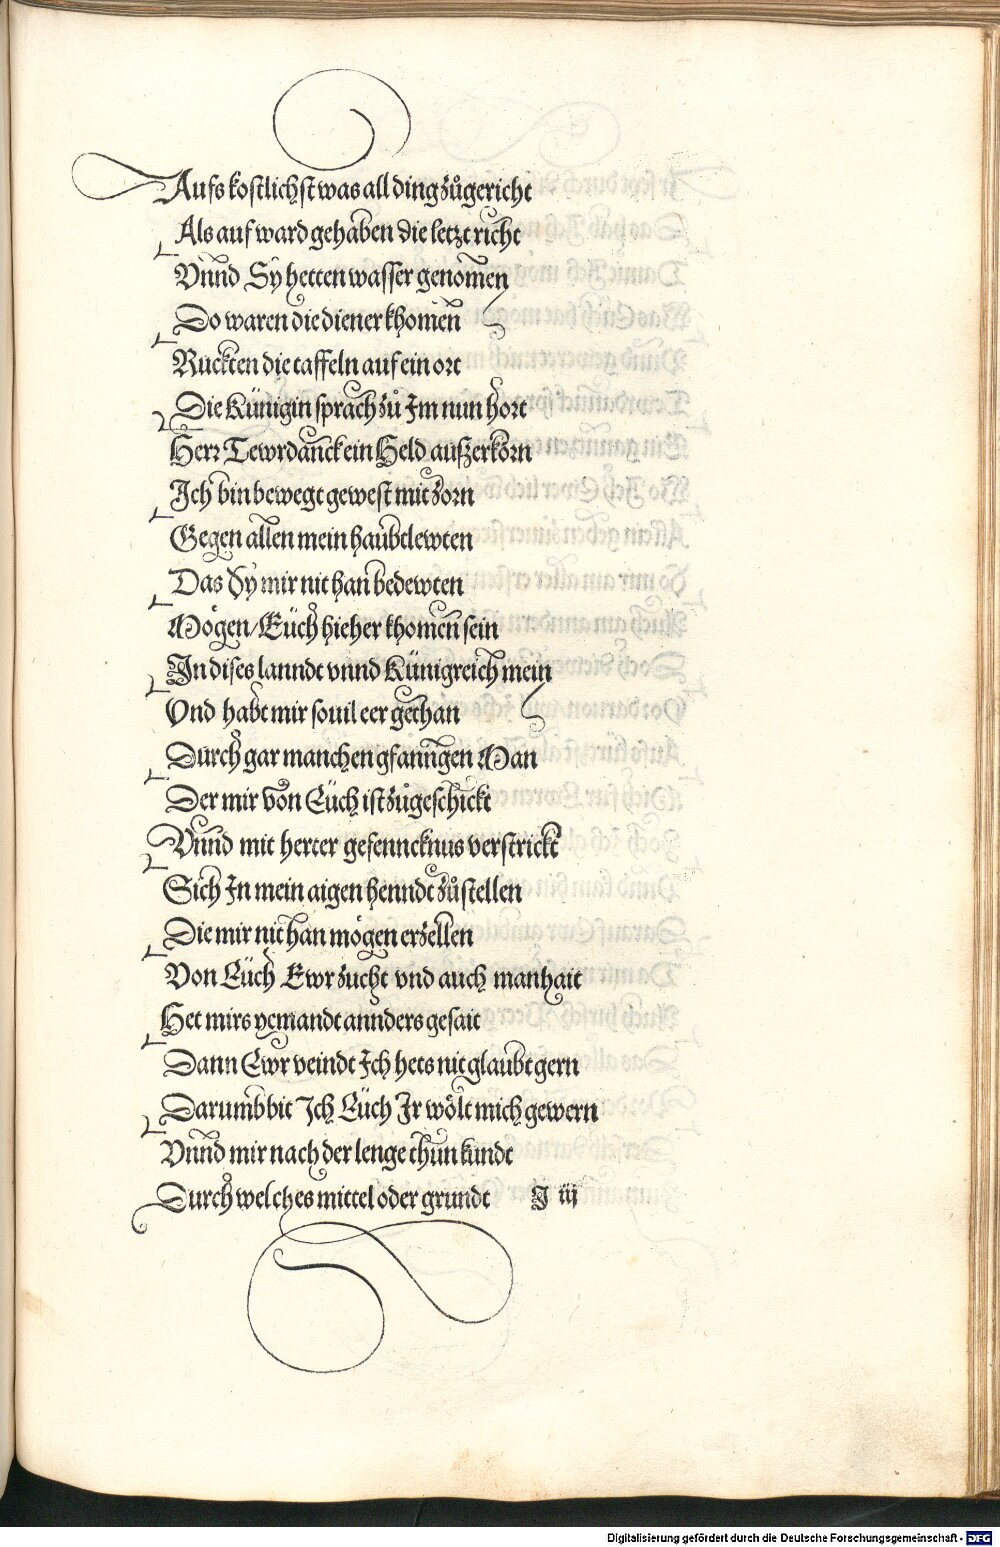 Aufs kostlichst was all ding zůgericht
Als auf ward gehaben die letzt richt
Vnnd Sy hetten wasser genomen
Do waren die diener khomen
Ruckten die taffeln auf ein ort
Die Künigin sprach zů Im nun hört
Herr Tewrdannck ein Held außerkorn
Ich bin bewegt gewest mit zorn
Gegen allen mein haubtlewten
Das Sy mir nit han bedewten
Mögen / Eüch hieher khomen sein
In dises lanndt vnnd Künigreich mein
Vnd habt mir souil eer gethan
Durch gar manchen gfanngen Man
Der mir von Eüch ist zůgeschickt
Vnnd mit herter gefenncknus verstrickt
Sich In mein aigen henndt zůstellen
Die mir nit han mögen erzellen
Von Eüch Ewr zucht vnd auch manhait
Het mirs yemandt annders gesait
Dann Ewr veindt Ich hets nit glaubt gern
Darumb bit Ich Eüch Ir wölt mich gewern
Vnnd mir nach der lenge thun kundt
Durch welches mittel oder grundt J iij
Digitalisierung gefördert durch die Deutsche Forschungsgemeinschaft - DFG